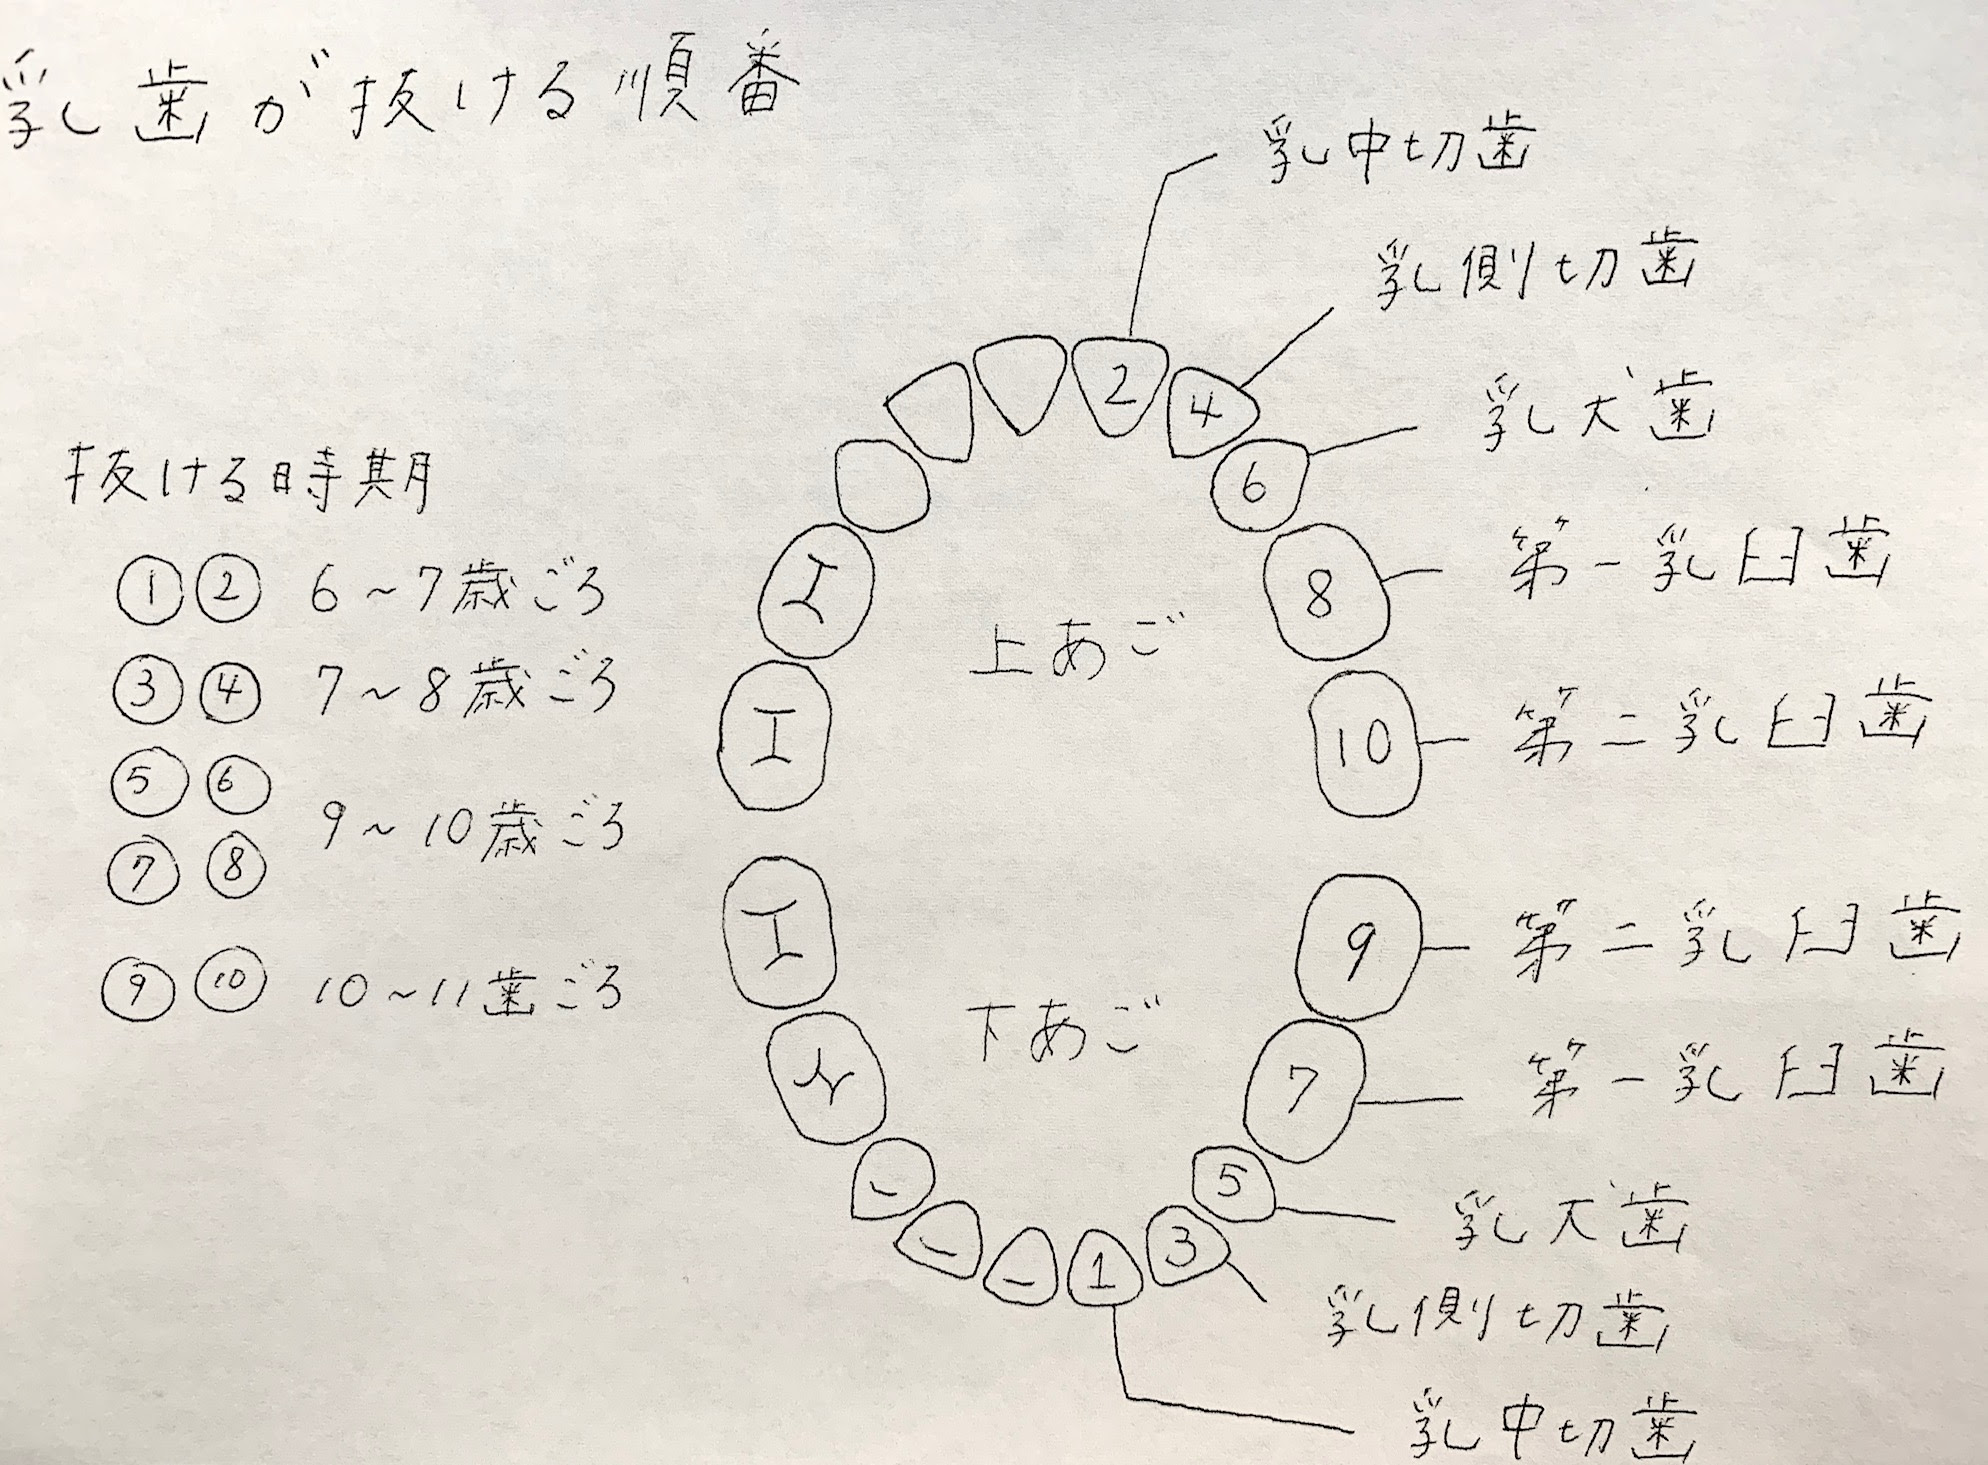 乳歯が抜ける順番
乳中切歯
乳側切歯
乳犬歯
第一乳臼歯
第二乳臼歯
2
4
6
8
10
上あご
抜ける時期
① ② 6~7歳ごろ
③ ④ 7~8歳ごろ
⑤ ⑥
⑦ ⑧ 9~10歳ごろ
⑨ ⑩ 10~11歯ごろ
下あご
9
7
5
3
1
第二乳臼歯
第一乳臼歯
乳犬歯
乳側切歯
乳中切歯